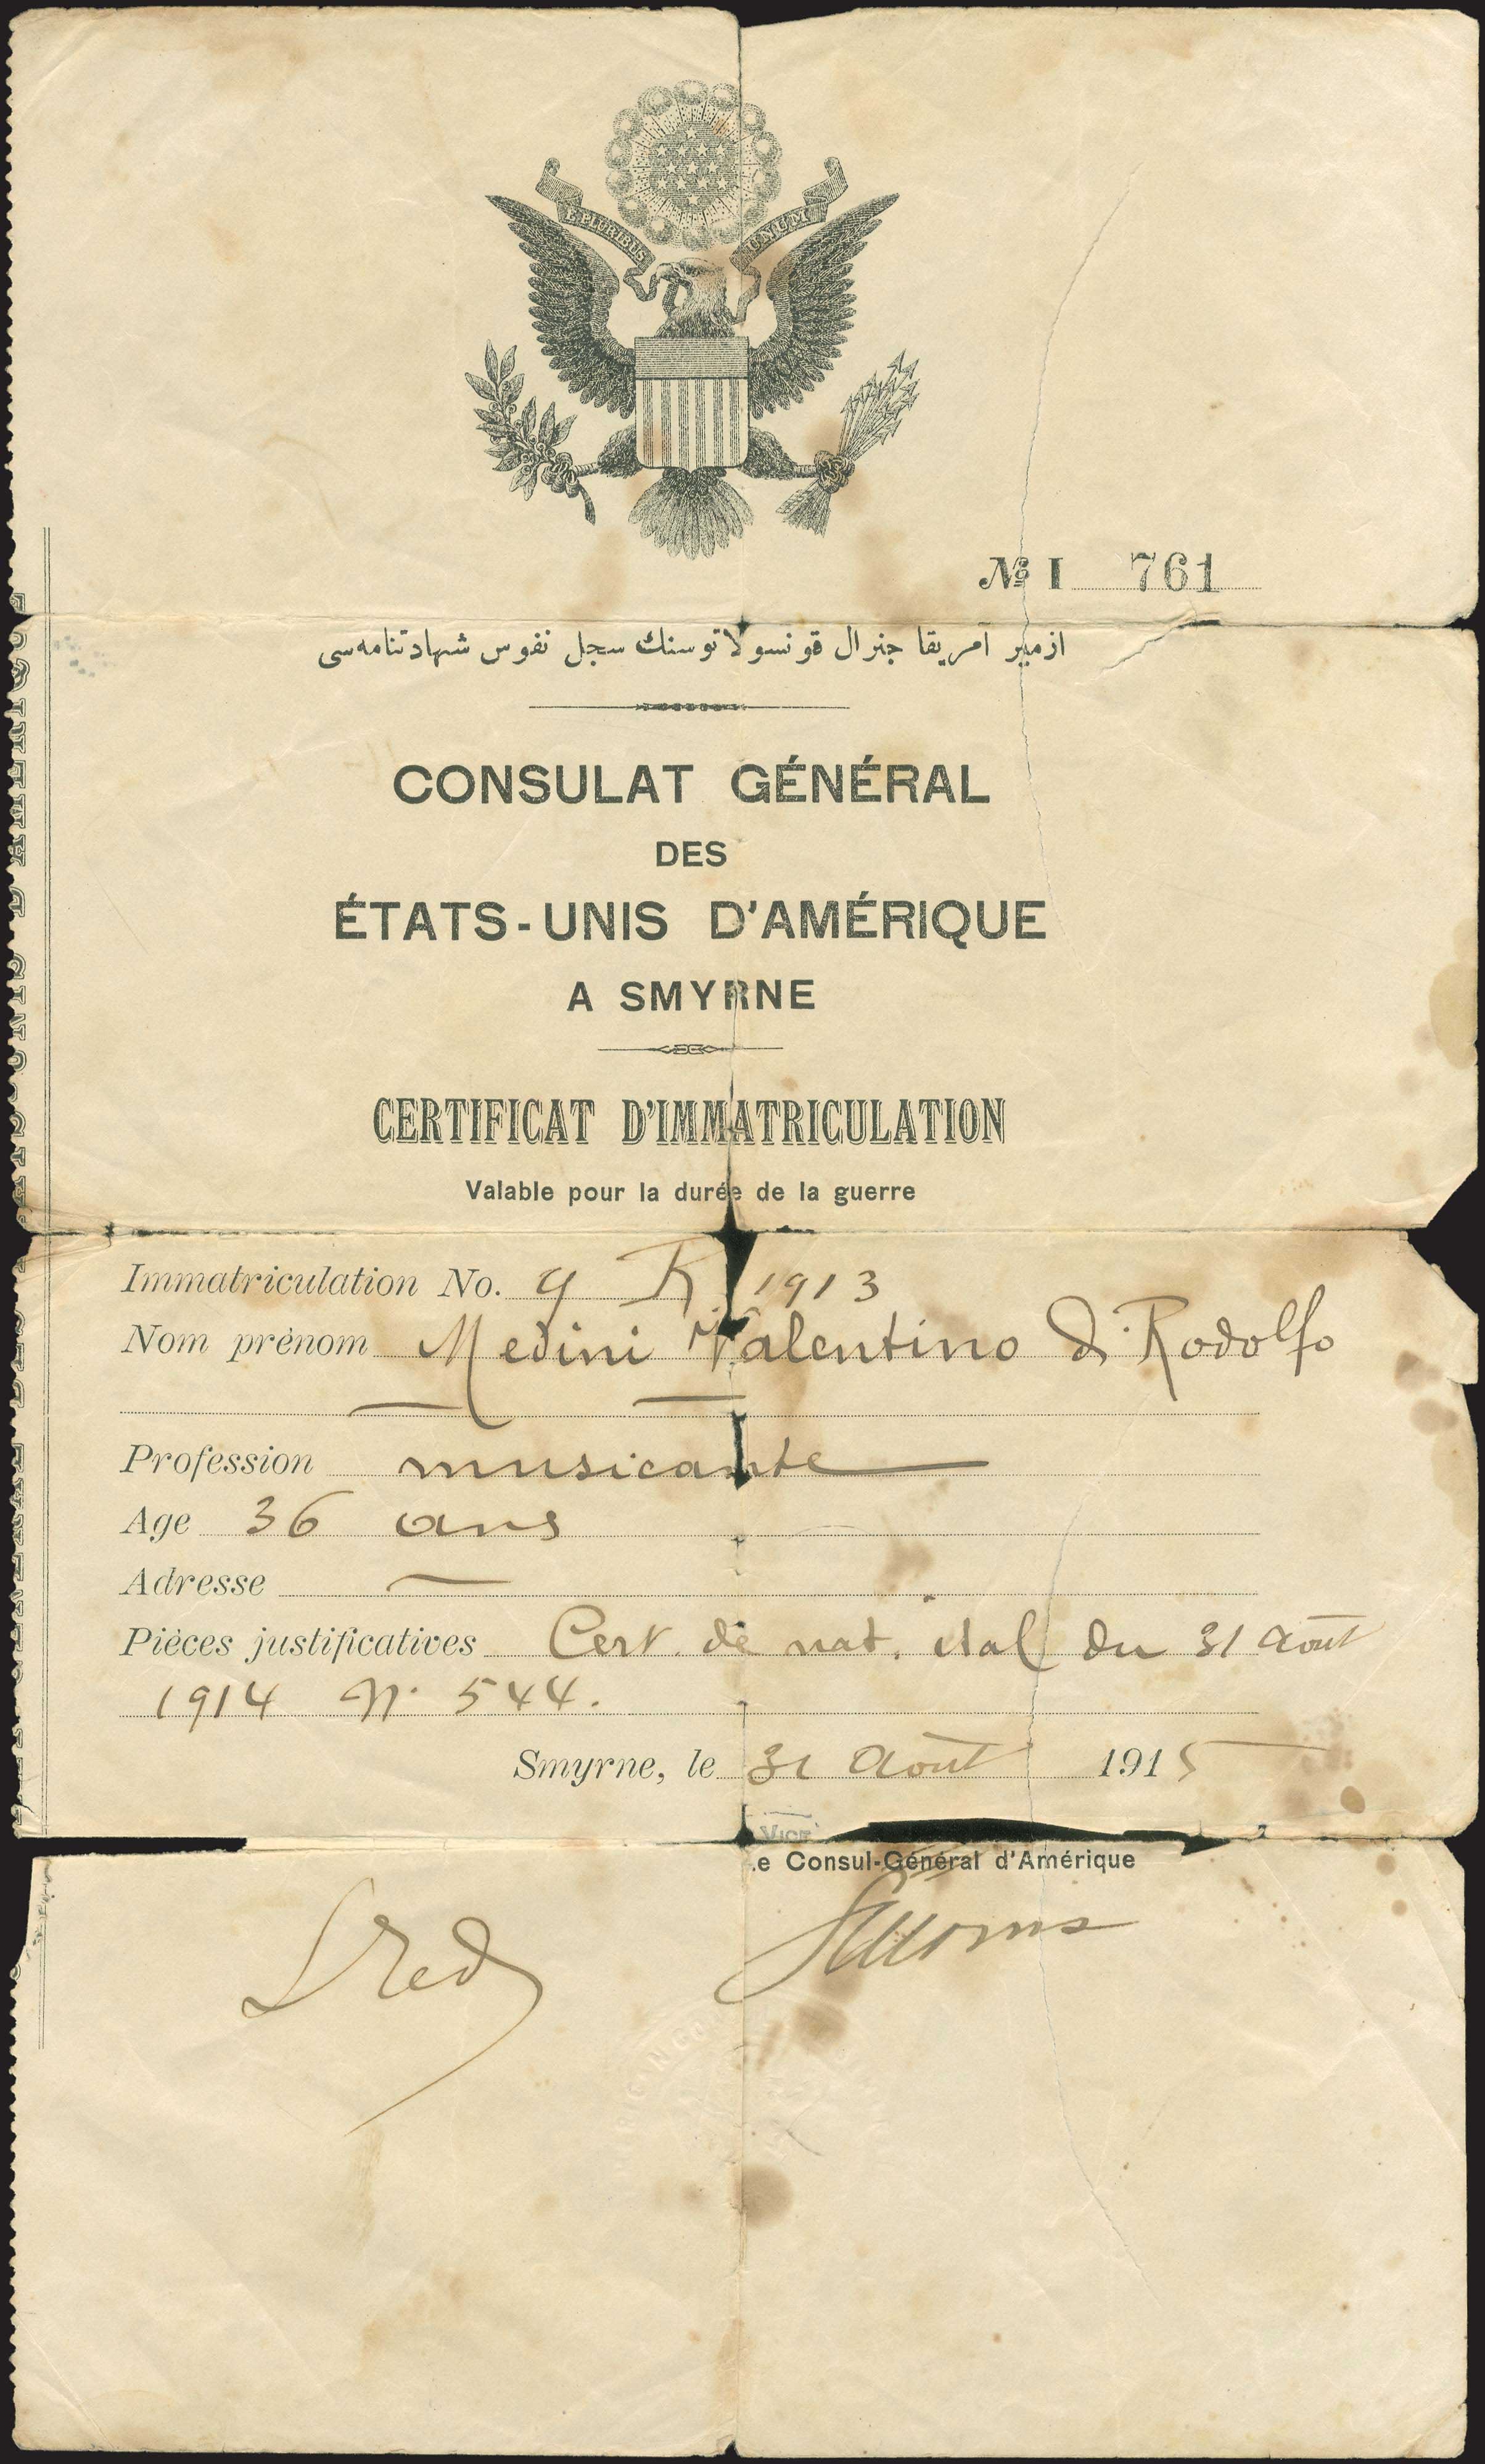 E PLURIBUS UNUM
№ I 761
ازمير آمريقا جنرال قونسولاتوسنك سجل نفوس شهادتنامه‌سى
CONSULAT GÉNÉRAL
DES
ÉTATS-UNIS D'AMÉRIQUE
A SMYRNE
CERTIFICAT D'IMMATRICULATION
Valable pour la durée de la guerre
Immatriculation No. 9 R 1913
Nom prènom Medini Valentino di Rodolfo
Profession musicante
Age 36 ans
Adresse —
Pièces justificatives Cert. de nat. ital du 31 août
1914 N. 544.
Smyrne, le 31 Août 1915
Vice
e Consul-Général d'Amérique